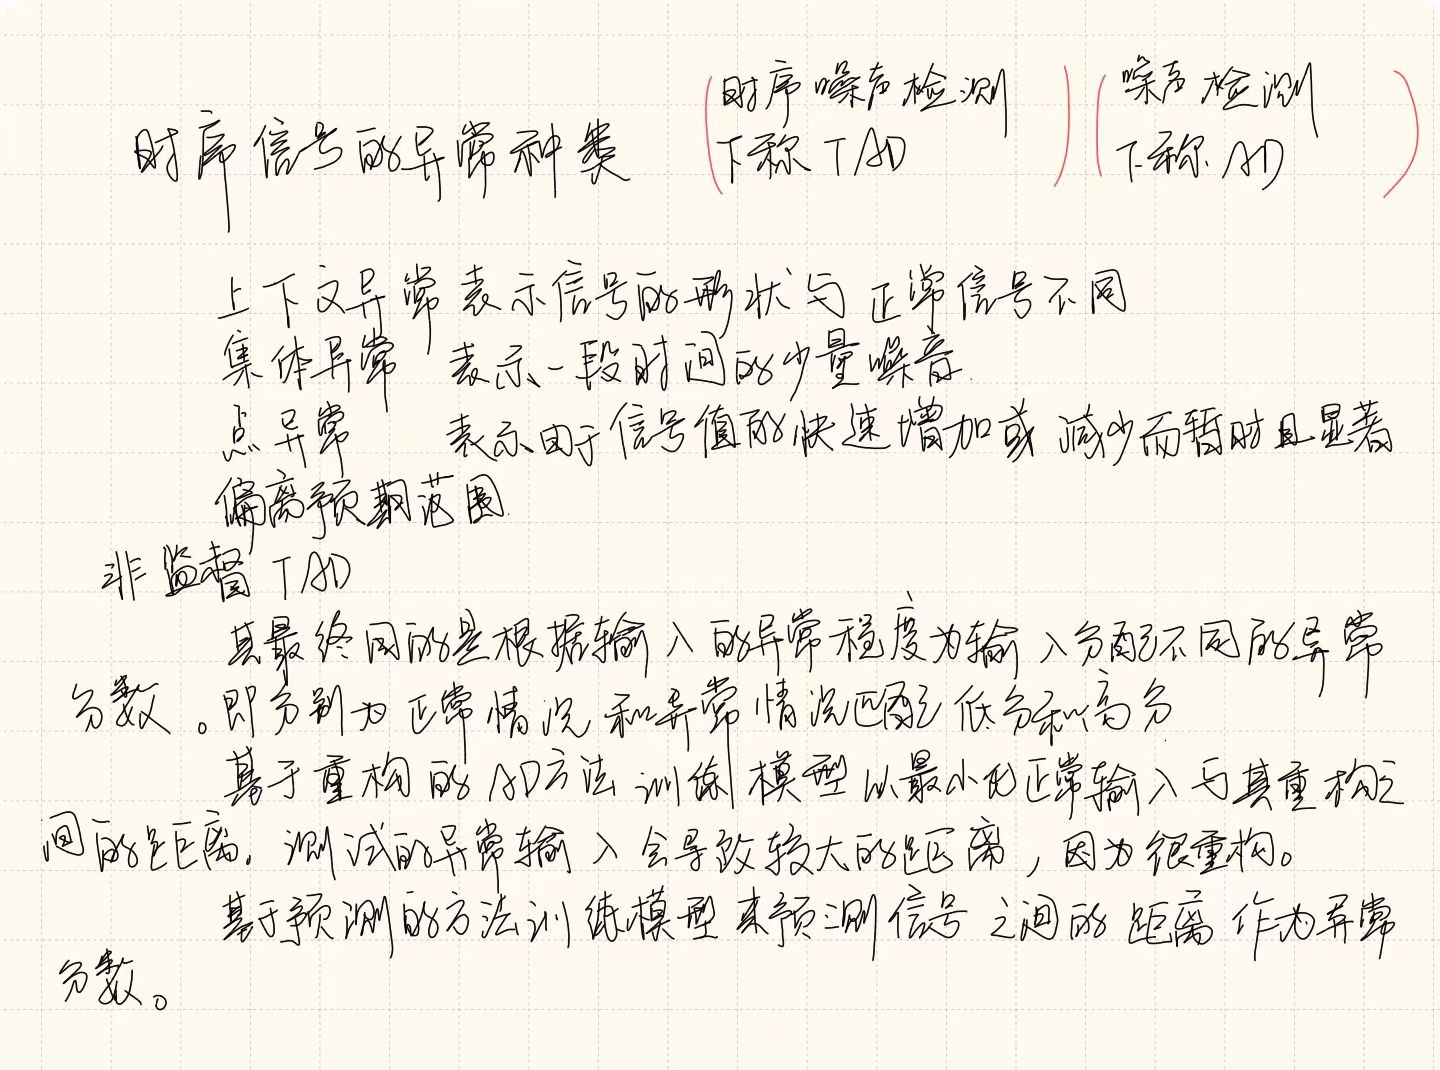 时序信号的异常种类
(时序噪声检测
下称TAD)
(噪声检测
下称AD)
上下文异常 表示信号的形状与正常信号不同
集体异常 表示一段时间的少量噪音.
点异常 表示由于信号值的快速增加或减少而暂时且显著
偏离预期范围.
非监督TAD
其最终目的是根据输入的异常程度为输入分配不同的异常
分数。即分别为正常情况和异常情况匹配低分和高分.
基于重构的AD方法训练模型以最小化正常输入与其重构之
间的距离. 测试的异常输入会导致较大的距离,因为很重构。
基于预测的方法训练模型来预测信号之间的距离作为异常
分数。